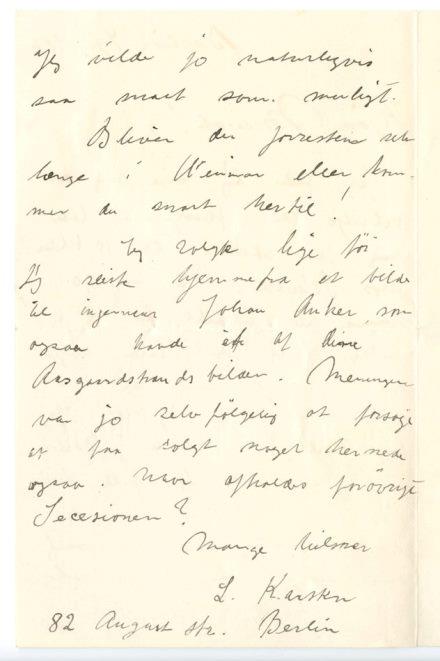 Jeg vilde jo naturligvis
saa snart som muligt.
Bliver du forresten selv
længe i Weimar eller kom-
mer du snart hertil!
Jeg solgte lige før
jeg reiste hjemmefra et bilde
til ingeniør Johan Anker, som
ogsaa havde et af dine
Aasgaardstrandsbilder. Meningen
var jo selvfølgelig at forsøge
at faa solgt noget hernede
ogsaa. Naar afholdes forøvrigt
Secesionen?
Mange hilsner
L. Karsten
82 August str. Berlin